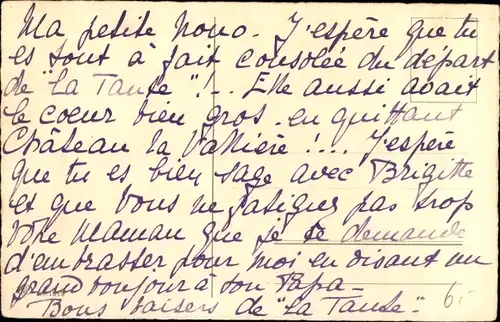 Ma petite Nono. J'espère que tu
es tout à fait consolée du départ
de "La Tante"!.. Elle aussi avait
le coeur bien gros en quittant
Château la Vallière!... J'espère
que tu es bien sage avec Brigitte
et que vous ne fatiguez pas trop
votre Maman que je te demande
d'embrasser pour moi en disant un
grand bonjour à ton Papa-
Bons baisers de "La Tante".